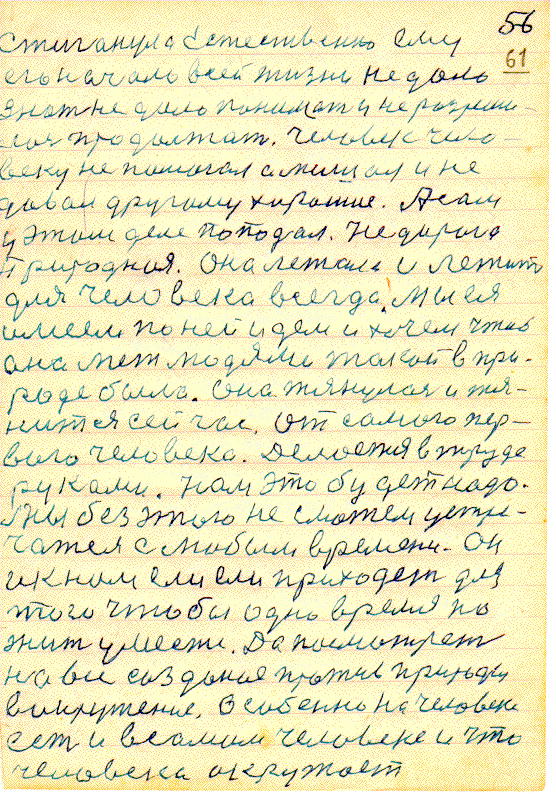 56
61
стиганула Естественно ему
его начало всей жизни не дало
знат не дало понимат и не разреши-
лося продолжат. Человек чело
веку не помогал а мешал и не
давал другому хорошие. А сам
у этом деле поподал. Не дорога
природная. Она лежала и лежить
для человека всегда. Мы ея
имеем по ней идем и хочем чтоб
она меж людями такой в при-
роде была. Она тянулася и тя-
нится сейчас. От самого пер-
вого человека. Делается в труде
руками. Нам это будет надо.
Мы без этого не сможем устре-
чатся с любым времени. Он
и к ним ели ели приходет для
того чтобы одно время по
жит умести. Да посмотрет
на вие созданое против природи
в окружение. Особенно на человеке
сет и в самом человеке и что
человека окружает